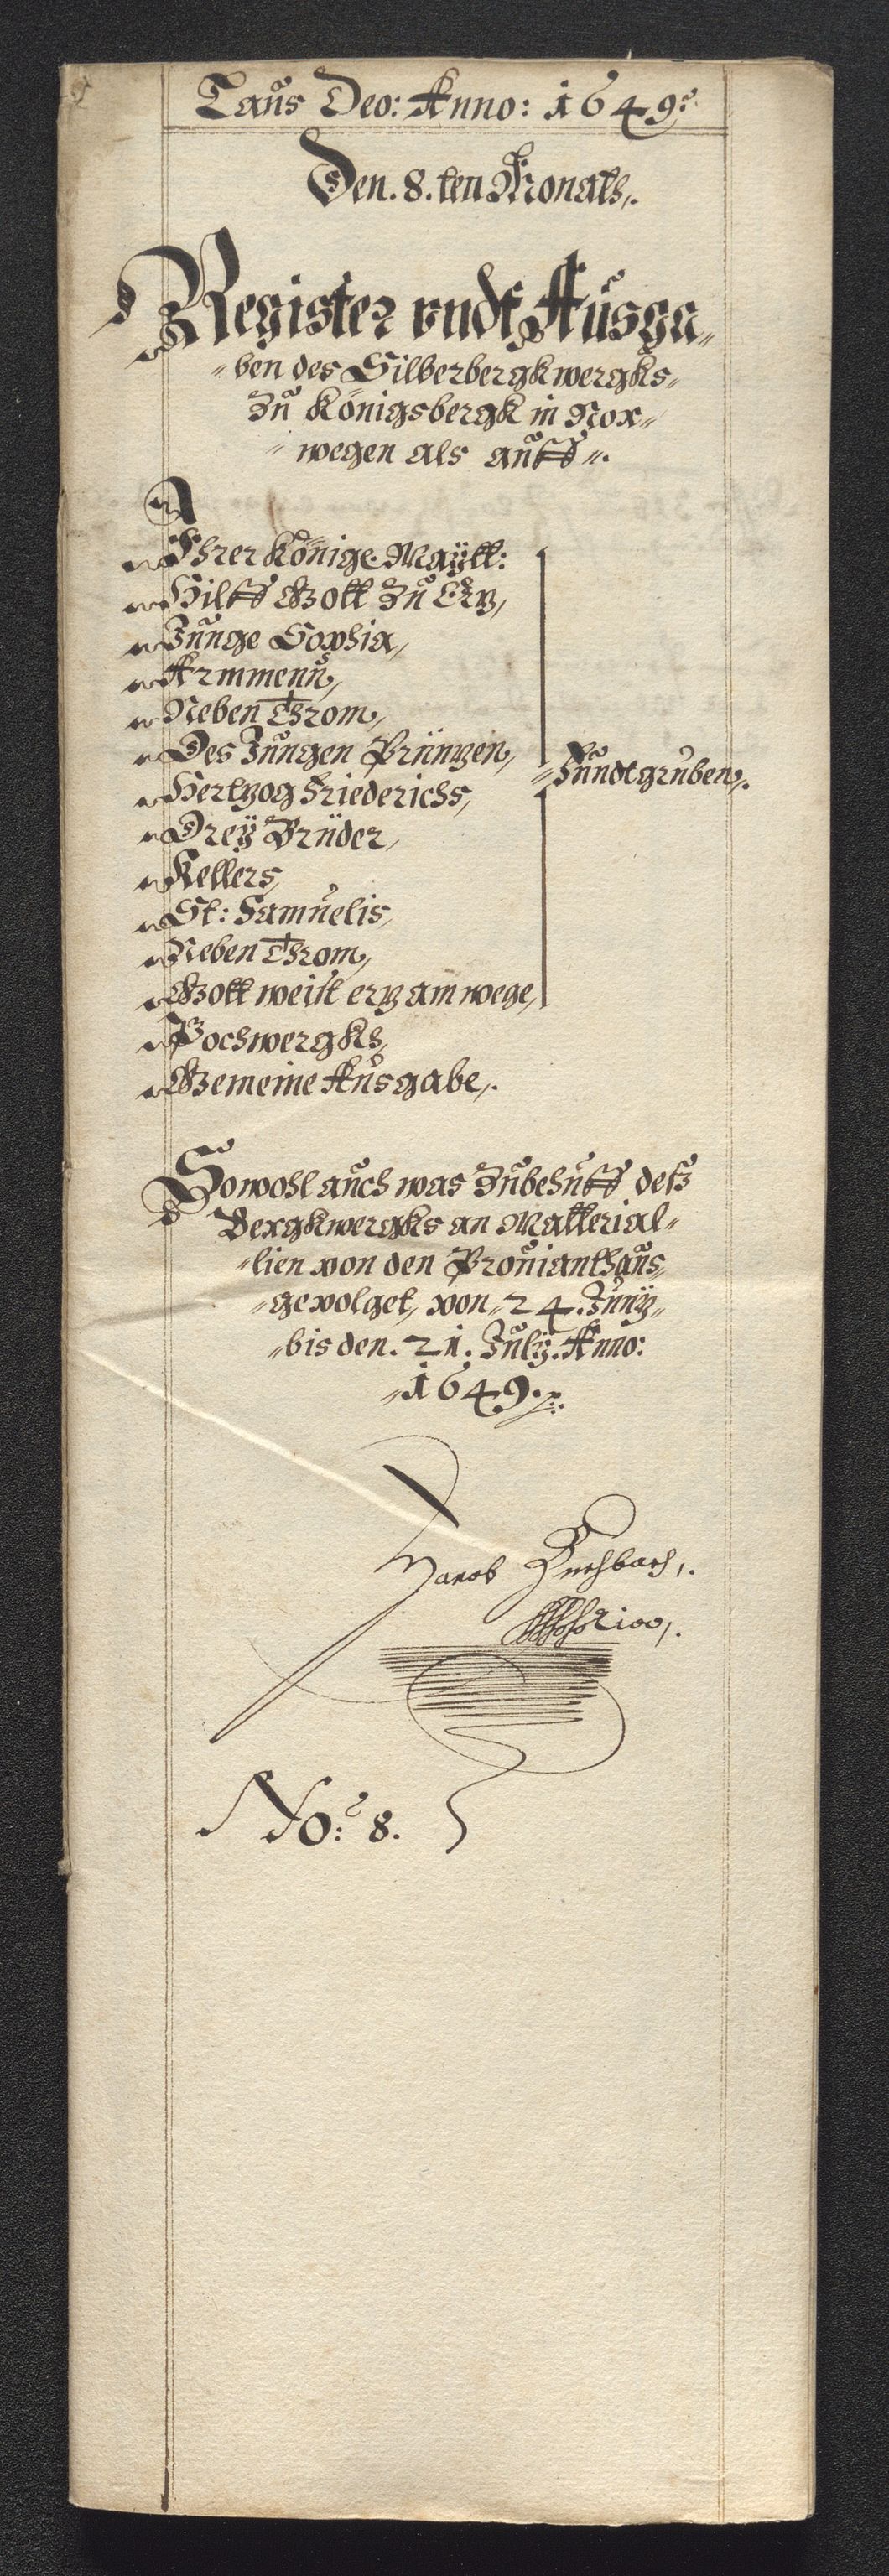 Laus Deo: Anno: 1649:
Den. 8. ten Monats,.
Register vndt Außga„
„ben des Silberbergkwergks„
Zu Königsbergk in Nor„
„wegen als auff„.
Ihrer Könige. Maÿtt:
Hilff Gott Zu Ertz,
Junge Sophia,
Armmenn,
Neben Throm,
Des Jungen Printzen,
Hertzog Friederichs,
Fundtgruben,.
Dreÿ Brüder,
Kellers,
St: Samuelis,
Neben Throm,
Gott weist ertz am wege,
Pochwergks,
Gemeine Ausgabe,.
Sowohl auch was Zubehuff deß
Bergkwergks an Matterial„
„lien von den Prouianthaus,
„gevolget, von„ 24. Junÿ„
„bis den. 21. Julÿ. Anno:
„1649.
Jacob
No: 8.